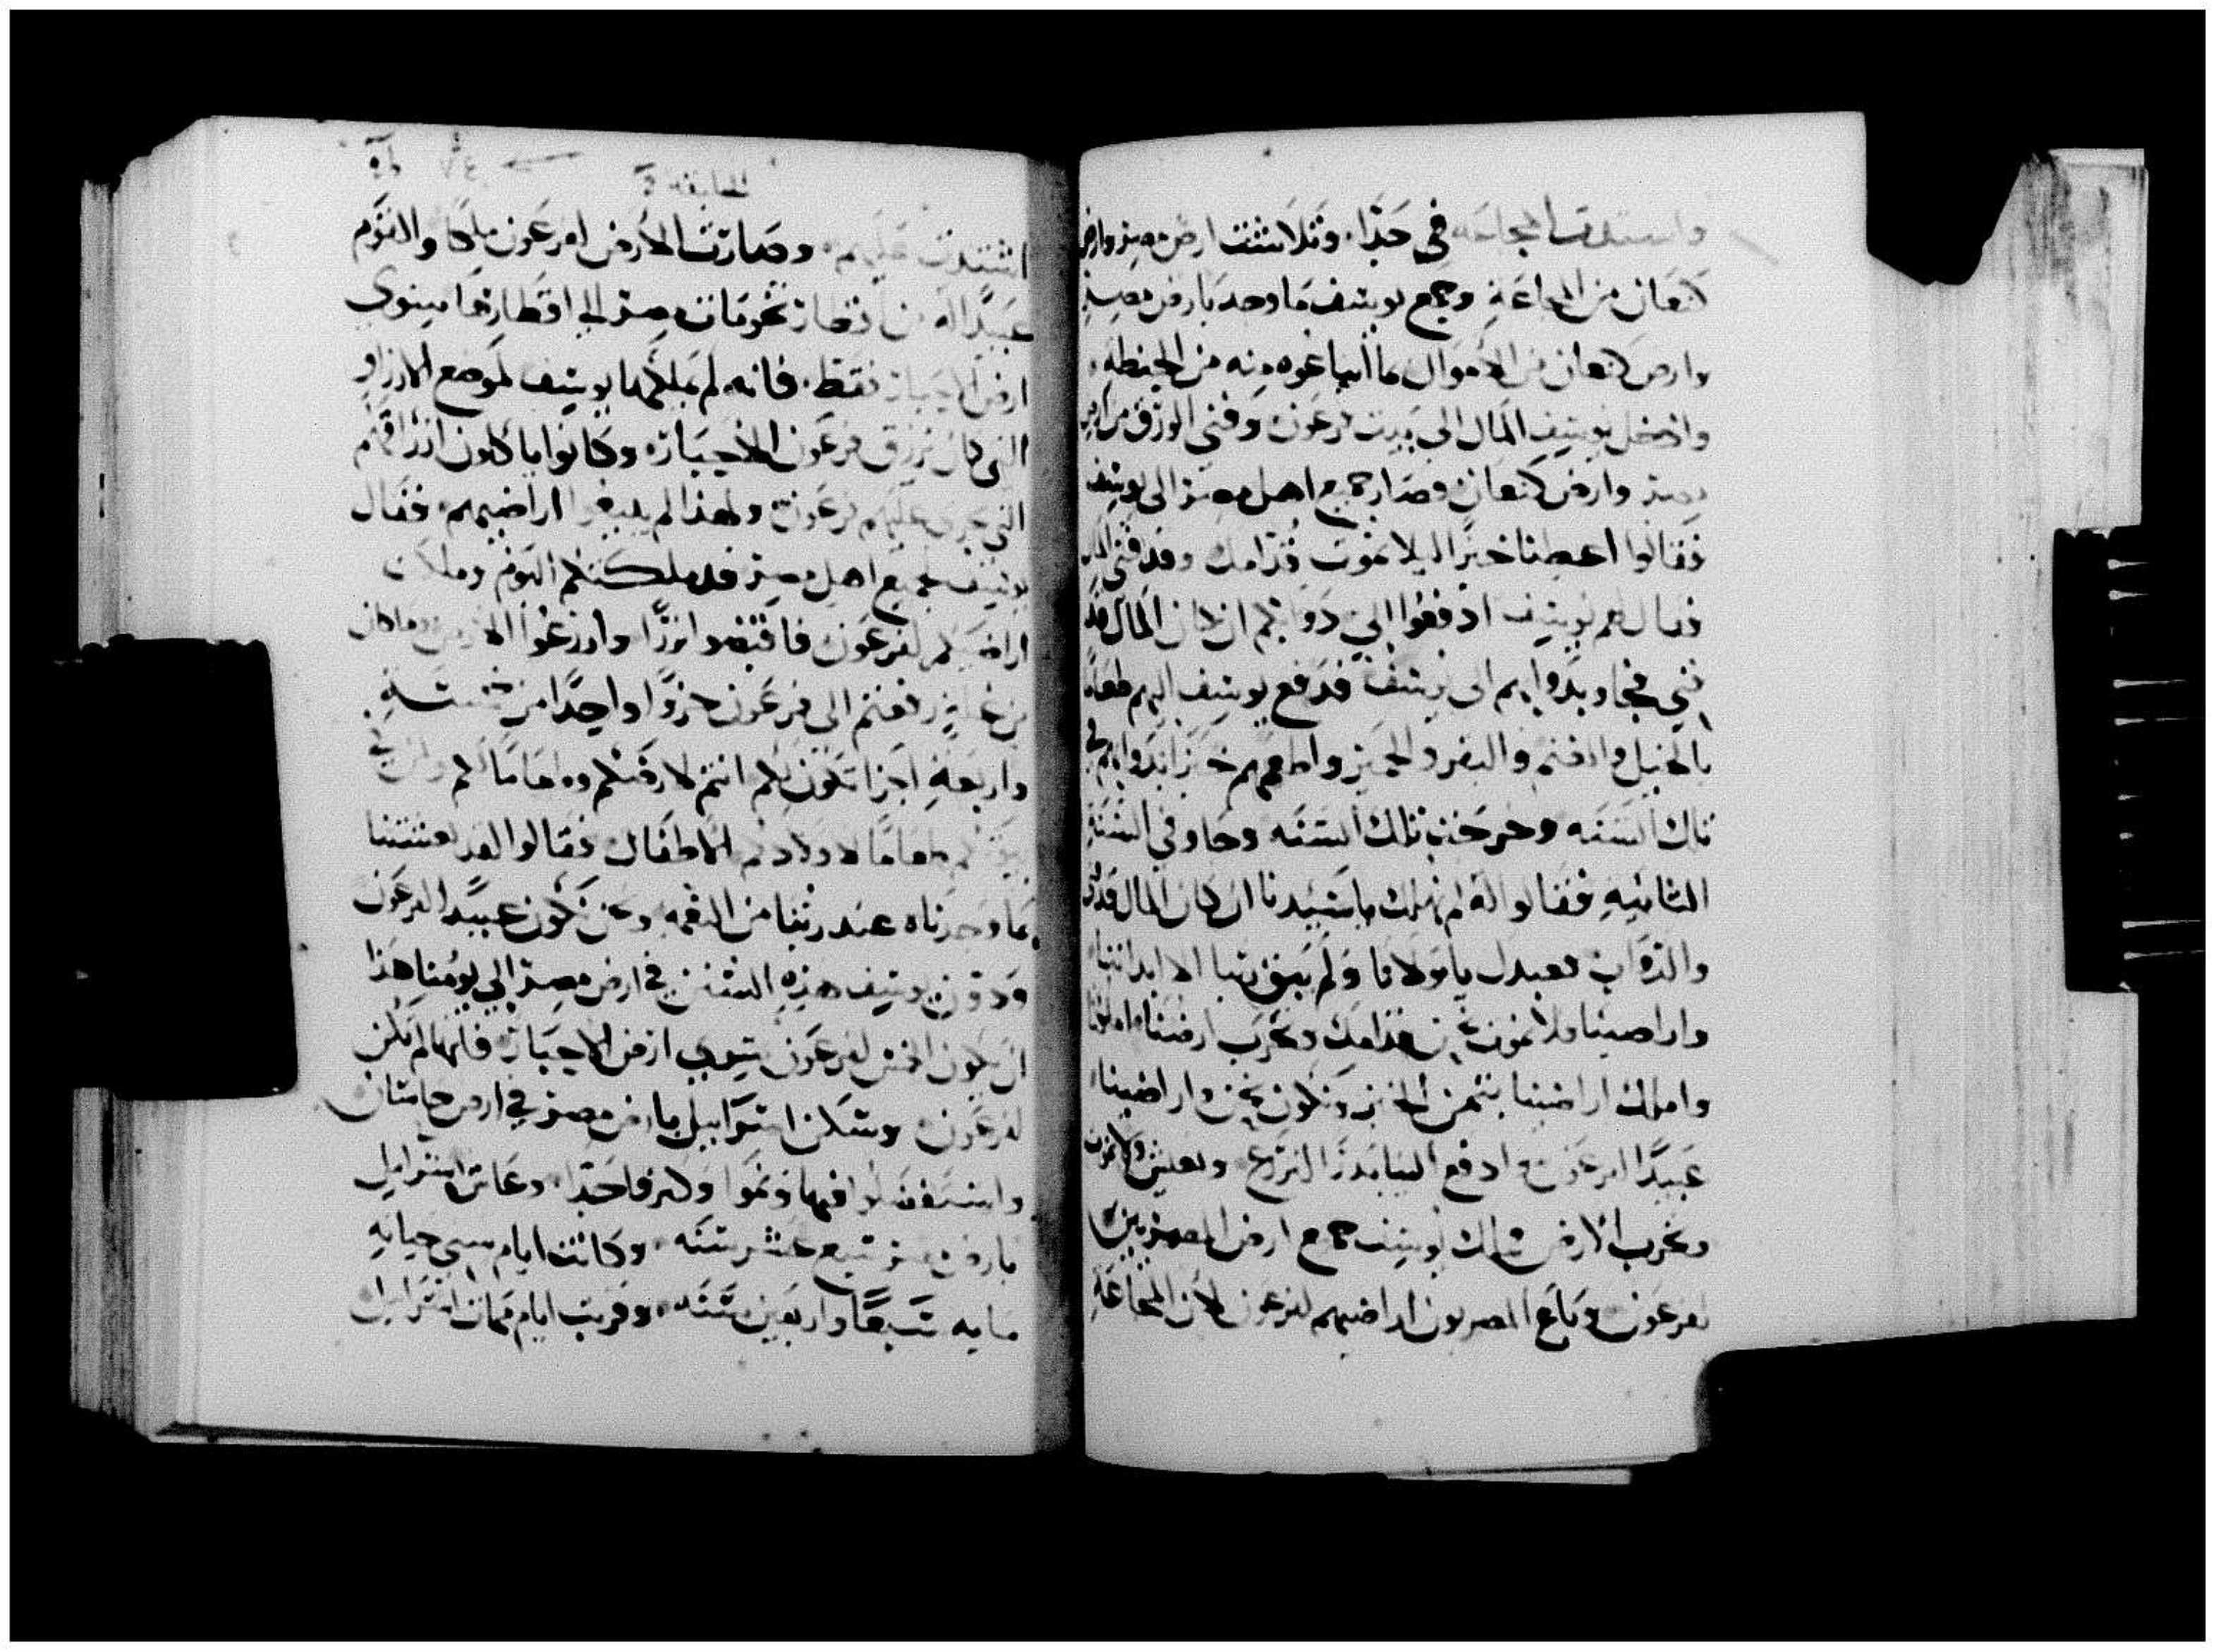 واشتدت المجاعه في حدا، وتلاشت ارض مصر وارض
كنعان من المجاعة وجمع يوسف ما وجد بارض مصر
وارض كنعان من الاموال ما ابتاعوه منه من الحنطه،
وادخل يوسف المال الى بيت فرعون وفني الورق من ارض
مصر وارض كنعان وصار جميع اهل مصر الى يوسف
فقالوا اعطنا خبزا ليلا نموت قدامك وقد فني المال
فقال لهم يوسف ادفعوا الي دوابكم ان كان المال قد
فني فجاو بدوابهم الى يوسف فدفع يوسف اليهم طعاما
بالخيل والغنم والبقر والحمير واطعمهم خبزا بدوابهم في
تلك السنه وخرجت تلك السنه وجاو في السنة
الثانيه فقالوا له لم نهلك يا سيدنا ان كان المال قد فني
والدواب بعبدك يا مولانا ولم يبق لنا الا ابداننا،
واراضينا ولا نموت نحن قدامك وتخرب ارضنا، املكنا
واملك اراضينا بثمن الخبز ونكون نحن واراضينا،
عبيدا لفرعون وادفع الينا بذرا لنزرع ونعيش ولا نموت
وتخرب الارض فملك يوسف جميع ارض المصريين
لفرعون وباع المصريون اراضيهم لفرعون لان المجاعة
السابعه
اشتدت عليهم، وصارت الارض لفرعون ملكا والقوم
عبيدا له من اقطار تخومات مصر الي اقطارها ما سوي
ارض الاحبار فقط، فانه لم يملكها يوسف لموضع الارزاق
التي كان يرزق فرعون الاحبار، وكانوا ياكلون ارزاقهم
التي يجري عليهم فرعون ولهذا لم يبيعوا اراضيهم، فقال
يوسف لجميع اهل مصر قد ملكتكم اليوم وملكت
اراضيكم لفرعون فاقبضوا بزرا وازرعوا الارض وما كان
من غلة دفعتم الى فرعون جزوا واحدا من خمسة
واربعة اجزا تكون لكم انتم لارضكم وطعاما لكم ولمن في
بيتكم طعاما لاولادكم الاطفال فقالوا لقد عشنا
بما وجدناه عند ربنا من النعمه ونحن نكون عبيدا لفرعون
ودون يوسف هذه السنن في ارض مصر الي يومنا هذا
ان يكون الخمس لفرعون سوي ارض الاحبار، فانها لم تكن
لفرعون وسكن اسراييل بارض مصر في ارض جاسان
واستفضلوا فيها ونموا وكثروا جدا، وعاش اسراييل
بارض مصر سبع عشر سنه، وكانت ايام سني حياته
مايه سبعا واربعين سنه، وقربت ايام ممات اسراييل